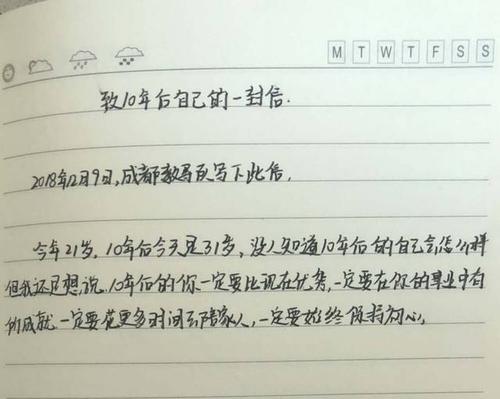 M T W T F S S
致10年后自己的一封信.
2018年12月9日,成都教写下此信.
今年21岁,10年后今天是31岁,没人知道10年后的自己会怎么样
但我还是想说,10年后的你一定要比现在优秀,一定要在你的事业中有
的成就.一定要花更多时间去陪家人,一定要始终保持初心。